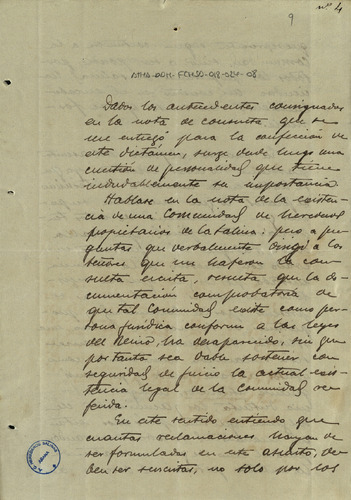 nº 4
9
Dados los antecedentes consignados
en la nota de consulta que se
me entregó para la confección de
este dictámen, surge desde luego una
cuestión de personalidad que tiene
indudablemente su importancia.
Háblase en la nota de la existen-
cia de una Comunidad de herederos
propietarios de la Salina: pero a pre-
guntas que verbalmente dirigí a los
señores que me hicieron la con-
sulta escrita, resulta que la do-
cumentación comprobatoria de
que tal Comunidad existe como per-
sona jurídica conforme a las leyes
del Reino, ha desaparecido, sin que
por tanto sea dable sostener con
seguridad de juicio la actual exis-
tencia legal de la Comunidad re-
ferida.
En este sentido entiendo que
cuantas reclamaciones hayan de
ser formuladas en este asunto, de-
ben ser suscritas, no solo por los